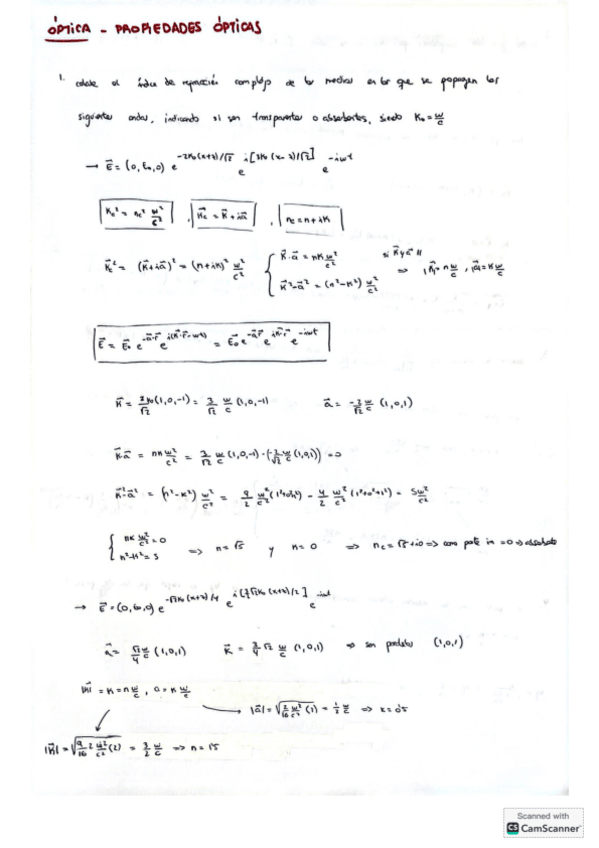 ÓPTICA - PROPIEDADES ÓPTICAS
1. calcule el índice de refracción complejo de los medios en los que se propagan las
siguientes ondas, indicando si son transparentes o absorbentes, siendo K₀ = w/c
→ E⃗ = (0, E₀, 0) e^{-2K₀(x+z)/√2} e^{i[3K₀(x-z)/√2]} e^{-iwt}
K_c² = n_c² w²/c² , K⃗_c = K⃗ + ia⃗ , n_c = n + iK
K_c² = (K⃗ + ia⃗)² = (n + iK)² w²/c² { K⃗·a⃗ = nK w²/c² si K⃗ y a⃗ //
K⃗² - a⃗² = (n² - K²) w²/c² ⇒ |K⃗| = n w/c , |a⃗| = K w/c
E⃗ = E⃗₀ e^{-a⃗·r⃗} e^{i(K⃗·r⃗ - wt)} = E₀ e^{-a⃗·r⃗} e^{iK⃗·r⃗} e^{-iwt}
K⃗ = K₀ (1,0,-1) = 3/√2 w/c (1,0,-1) a⃗ = -2/√2 w/c (1,0,1)
K⃗·a⃗ = nK w²/c² = 3/√2 w/c (1,0,-1) · (w/c (1,0,1)) ⇒
K⃗² - a⃗² = (n² - K²) w²/c² = 9/2 w²/c² - 4/2 w²/c² = 5 w²/c²
{ nK w²/c² = 0
n² - K² = 5 ⇒ n = √5 y K = 0 ⇒ n_c = √5 + i0 ⇒ como parte im = 0 ⇒
→ E⃗ = (0, E₀, 0) e^{-√2K₀(x+z)/4} e^{i[K₀(x+z)/2]} e^{-iwt}
a⃗ = √2/4 w/c (1,0,1) K⃗ = 3/4 √2 w/c (1,0,1) ⇒ son (1,0,1)
|K⃗| = K = n w/c , a = K w/c
|a⃗| = √(2/16 w²/c² (2)) = 1/2 w/c ⇒ K = 0'5
|K⃗| = √(9/16 2 w²/c² (2)) = 3/2 w/c ⇒ n = 1'5
Scanned with
CS CamScanner